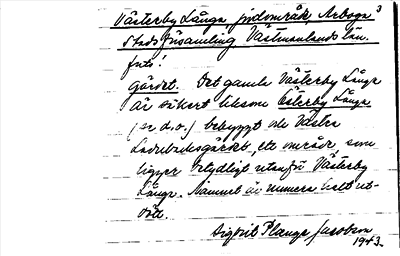 Västerby Långa jordområde Arboga 3
Stads församling Västmanlands län.
forts!
gärdet. Det gamla Västerby Långa
är säkert liksom Österby Långa
(se d.o.) bebyggt vid Västra
Ladubacksgärdet, ett område, som
ligger betydligt utanför Västerby
Långa. Namnet är numera helt ut-
dött.
Sigfrid Plange Jacobson
1943.